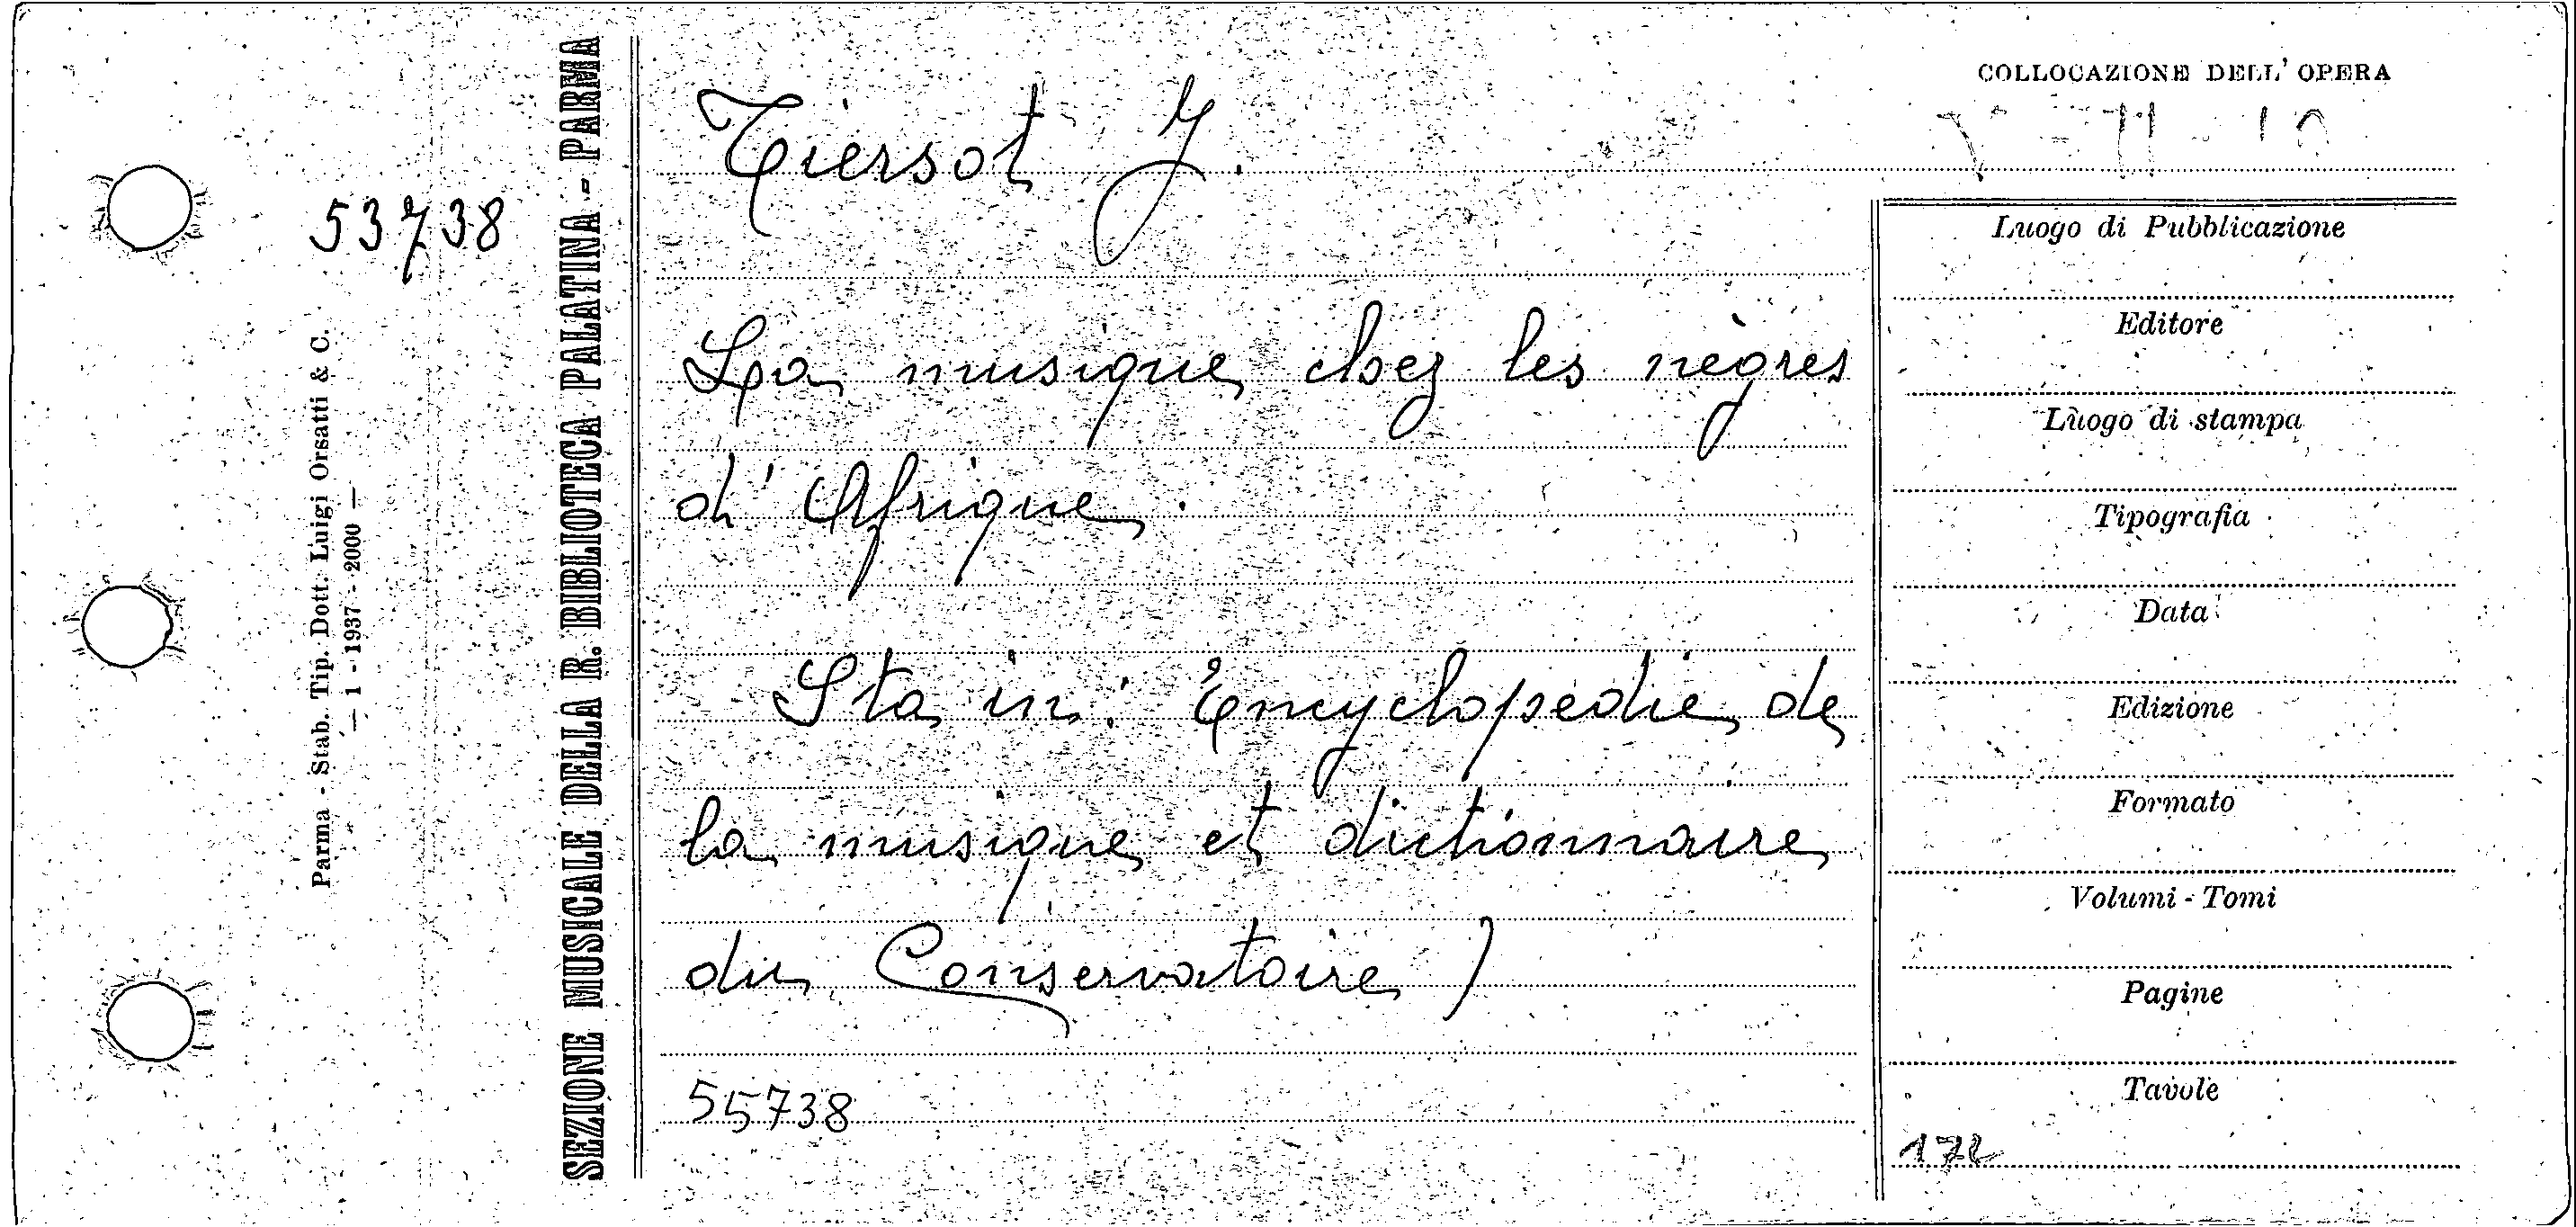 COLLOCAZIONE DELL' OPERA
Tiersot J.
53738
La musique chez les nègres
d' Afrique.
Sta in: Encyclopedie de
la musique et dictionnaire
du Conservatoire)
55738
Luogo di Pubblicazione
Editore
Luogo di stampa
Tipografia
Data
Edizione
Formato
Volumi - Tomi
Pagine
Tavole
172
SEZIONE MUSICALE DELLA R. BIBLIOTECA PALATINA - PARMA
Parma - Stab. Tip. Dott. Luigi Orsatti & C.
— 1 - 1937 - 2000 —